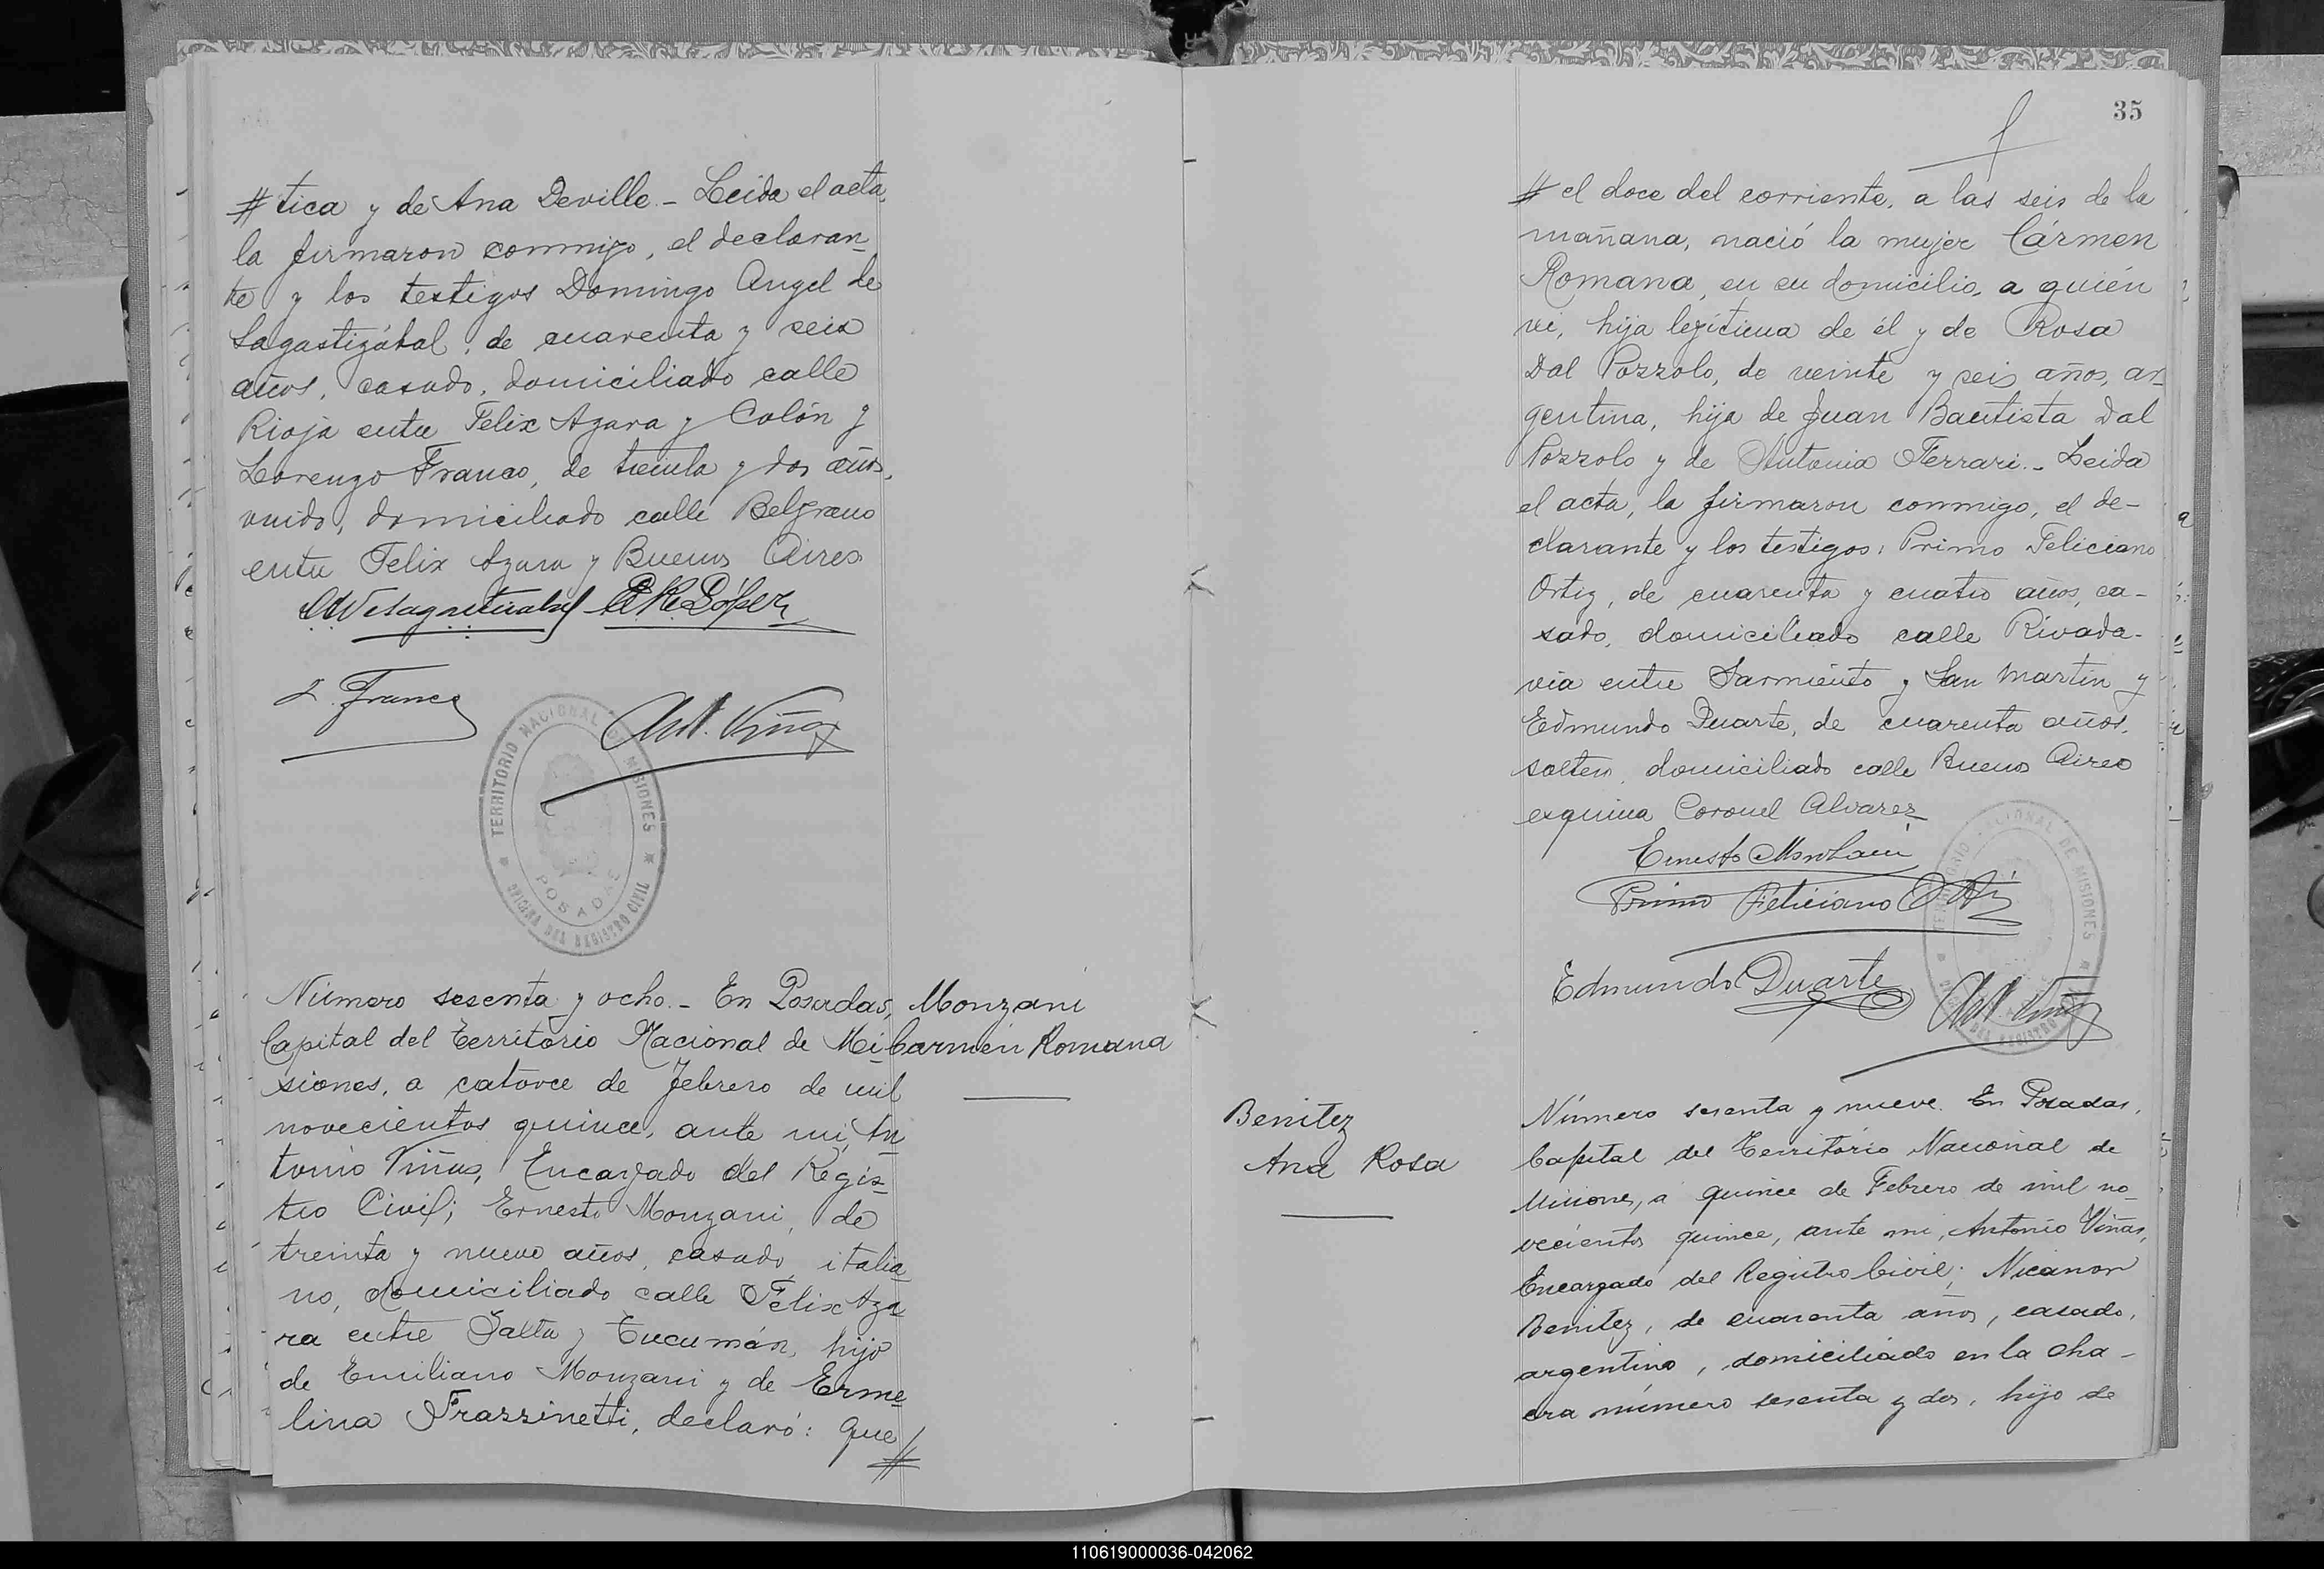 # tica y de Ana Deville.- Leida el acta,
la firmaron conmigo, el declaran
te y los testigos Domingo Angel de
Sagastizábal, de cuarenta y seis
años, casado, domiciliado calle
Rioja entre Felix Azara y Colón y
Lorenzo Franco, de treinta y dos años,
viudo, domiciliado calle Belgrano
entre Felix Azara y Buenos Aires
López
L. Franco
Ant. Viñas
TERRITORIO NACIONAL DE MISIONES
POSADAS
OFICINA DEL REGISTRO CIVIL
Número sesenta y ocho.- En Posadas,
Capital del Territorio Nacional de Mi
siones, a catorce de Febrero de mil
novecientos quince, ante mi, An
tonio Viñas, Encargado del Regis
tro Civil; Ernesto Monzani, de
treinta y nueve años, casado, italia
no, domiciliado calle Félix Aza
ra entre Salta y Tucumán, hijo
de Emiliano Monzani y de Erme
lina Frassinetti, declaró: que #
Monzani
Carmen Romana
35
# el doce del corriente, a las seis de la
mañana, nació la mujer Cármen
Romana, en su domicilio, a quién
vi, hija legítima de él y de Rosa
Dal Pozzolo, de veinte y seis años, ar
gentina, hija de Juan Bautista Dal
Pozzolo y de Antonia Ferrari.- Leida
el acta, la firmaron conmigo, el de-
clarante y los testigos: Primo Feliciano
Ortiz, de cuarenta y cuatro años, ca-
sado, domiciliado calle Rivada-
via entre Sarmiento y San Martín y
Edmundo Duarte, de cuarenta años,
soltero, domiciliado calle Buenos Aires
esquina Coronel Alvarez
Ernesto Monzani
Primo Feliciano Ortiz
Edmundo Duarte
Ant. Viñas
TERRITORIO NACIONAL DE MISIONES
Benitez
Ana Rosa
Número sesenta y nueve. En Posadas,
Capital del Territorio Nacional de
Misiones, a quince de Febrero de mil no
vecientos quince, ante mi, Antonio Viñas,
Encargado del Registro Civil; Nicanor
Benitez, de cuarenta años, casado,
argentino, domiciliado en la cha-
cra número sesenta y dos, hijo de
110619000036-042062